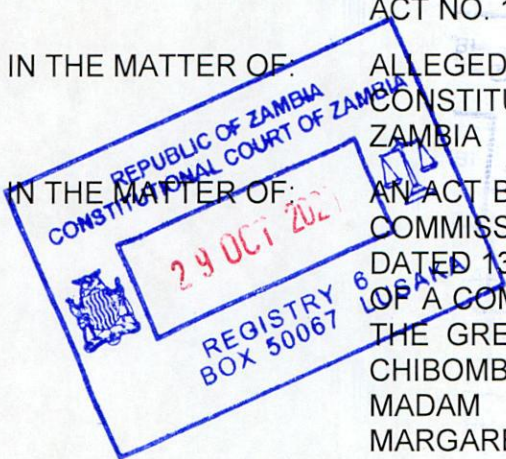 ACT NO.
IN THE MATTER OF: ALLEGED
CONSTITU
ZAMBIA
IN THE MATTER OF: AN ACT B
COMMISS
DATED 13
OF A COM
THE GRE
CHIBOMB
MADAM
MARGARE
REPUBLIC OF ZAMBIA
CONSTITUTIONAL COURT OF ZAMBIA
29 OCT 202
REGISTRY 6
BOX 50067 LUSAKA